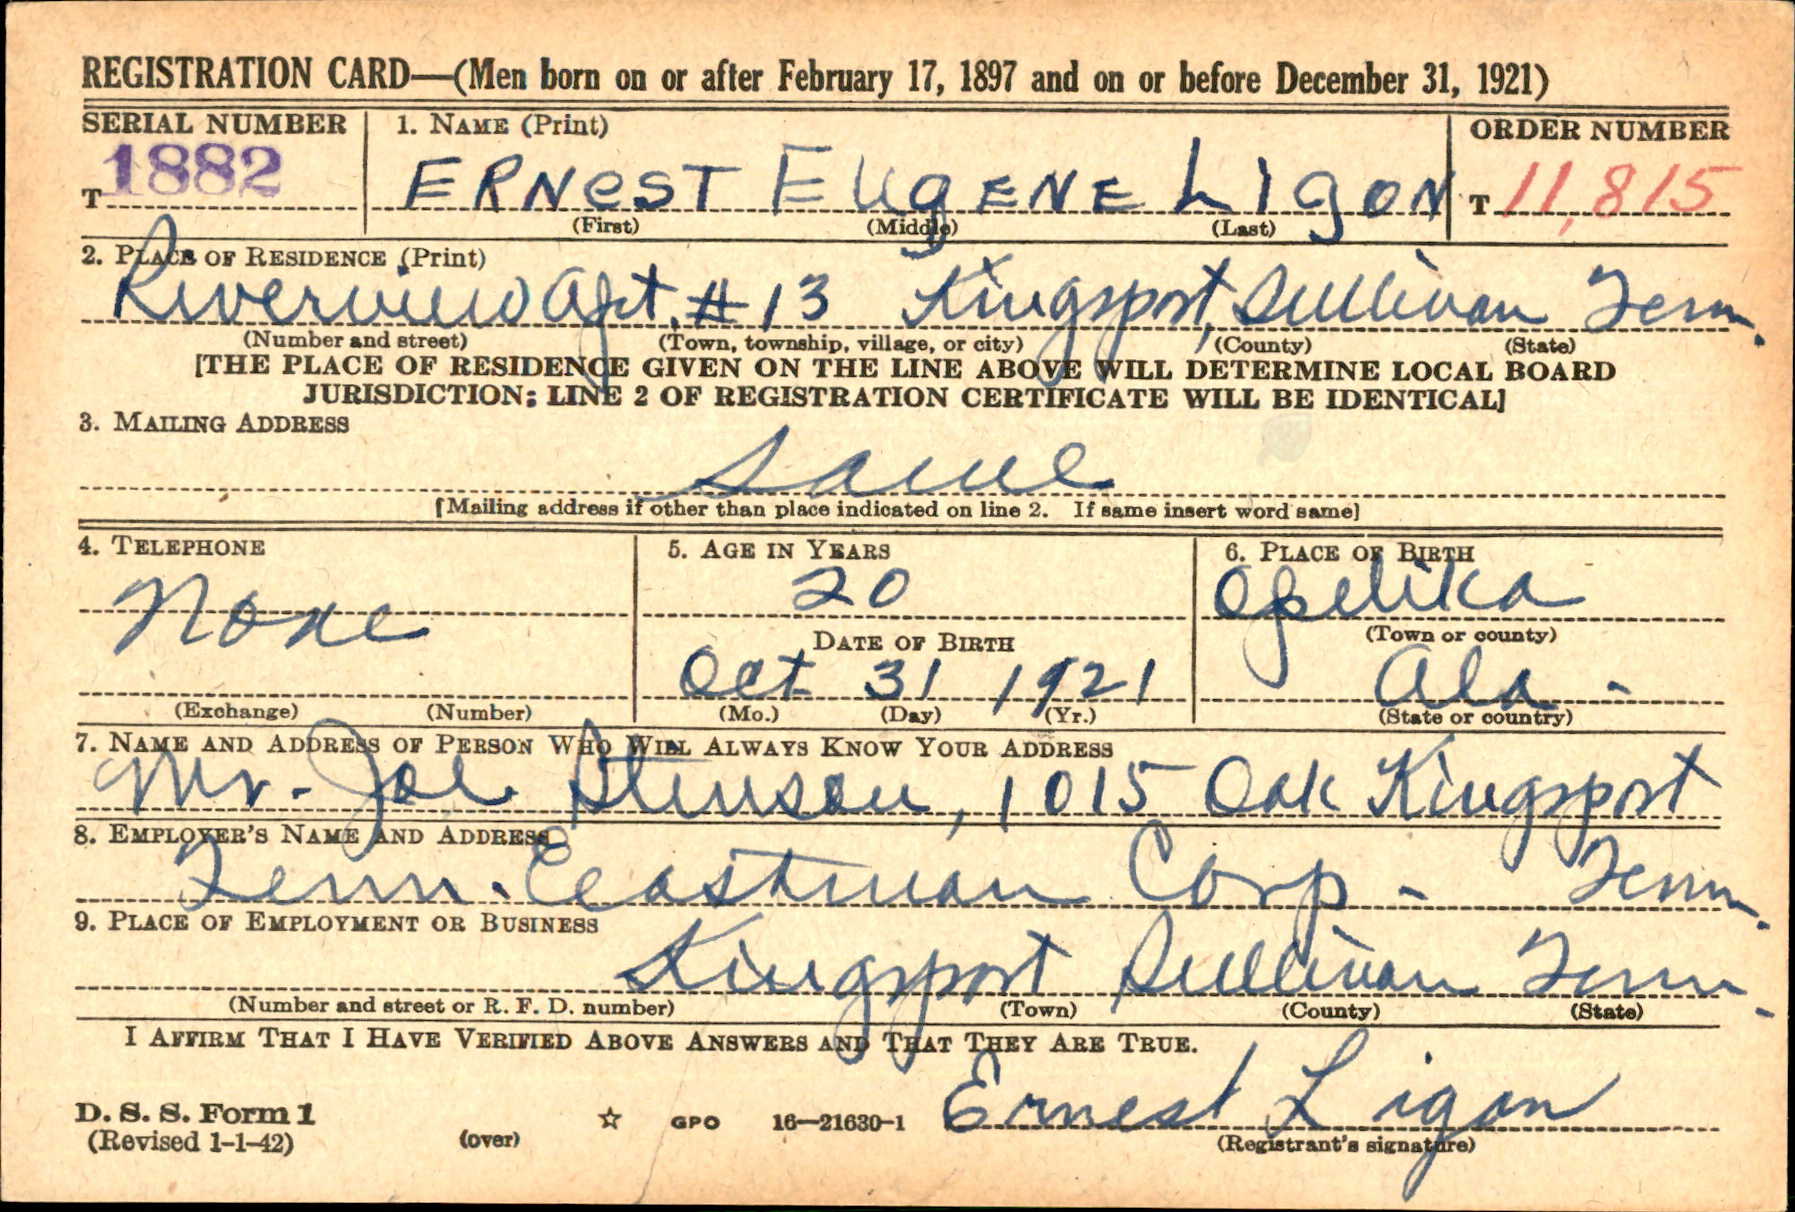 REGISTRATION CARD—(Men born on or after February 17, 1897 and on or before December 31, 1921)
SERIAL NUMBER 1. NAME (Print) ORDER NUMBER
T 1882 ERNEST EUgENE LIgON T 11,815
(First) (Middle) (Last)
2. PLACE OF RESIDENCE (Print)
Riverview Apt. #13 Kingsport, Sullivan Tenn.
(Number and street) (Town, township, village, or city) (County) (State)
[THE PLACE OF RESIDENCE GIVEN ON THE LINE ABOVE WILL DETERMINE LOCAL BOARD
JURISDICTION; LINE 2 OF REGISTRATION CERTIFICATE WILL BE IDENTICAL]
3. MAILING ADDRESS
Same
[Mailing address if other than place indicated on line 2. If same insert word same]
4. TELEPHONE 5. AGE IN YEARS 6. PLACE OF BIRTH
None 20 Opelika
DATE OF BIRTH (Town or county)
Oct 31 1921 Ala -
(Exchange) (Number) (Mo.) (Day) (Yr.) (State or country)
7. NAME AND ADDRESS OF PERSON WHO WILL ALWAYS KNOW YOUR ADDRESS
Mr. Joe Stinson, 1015 Oak Kingsport
8. EMPLOYER'S NAME AND ADDRESS
Tenn. Eastman Corp - Tenn.
9. PLACE OF EMPLOYMENT OR BUSINESS
Kingsport Sullivan Tenn.
(Number and street or R. F. D. number) (Town) (County) (State)
I AFFIRM THAT I HAVE VERIFIED ABOVE ANSWERS AND THAT THEY ARE TRUE.
D. S. S. Form 1 ☆ GPO 16—21630-1 Ernest Ligon
(Revised 1-1-42) (over) (Registrant's signature)